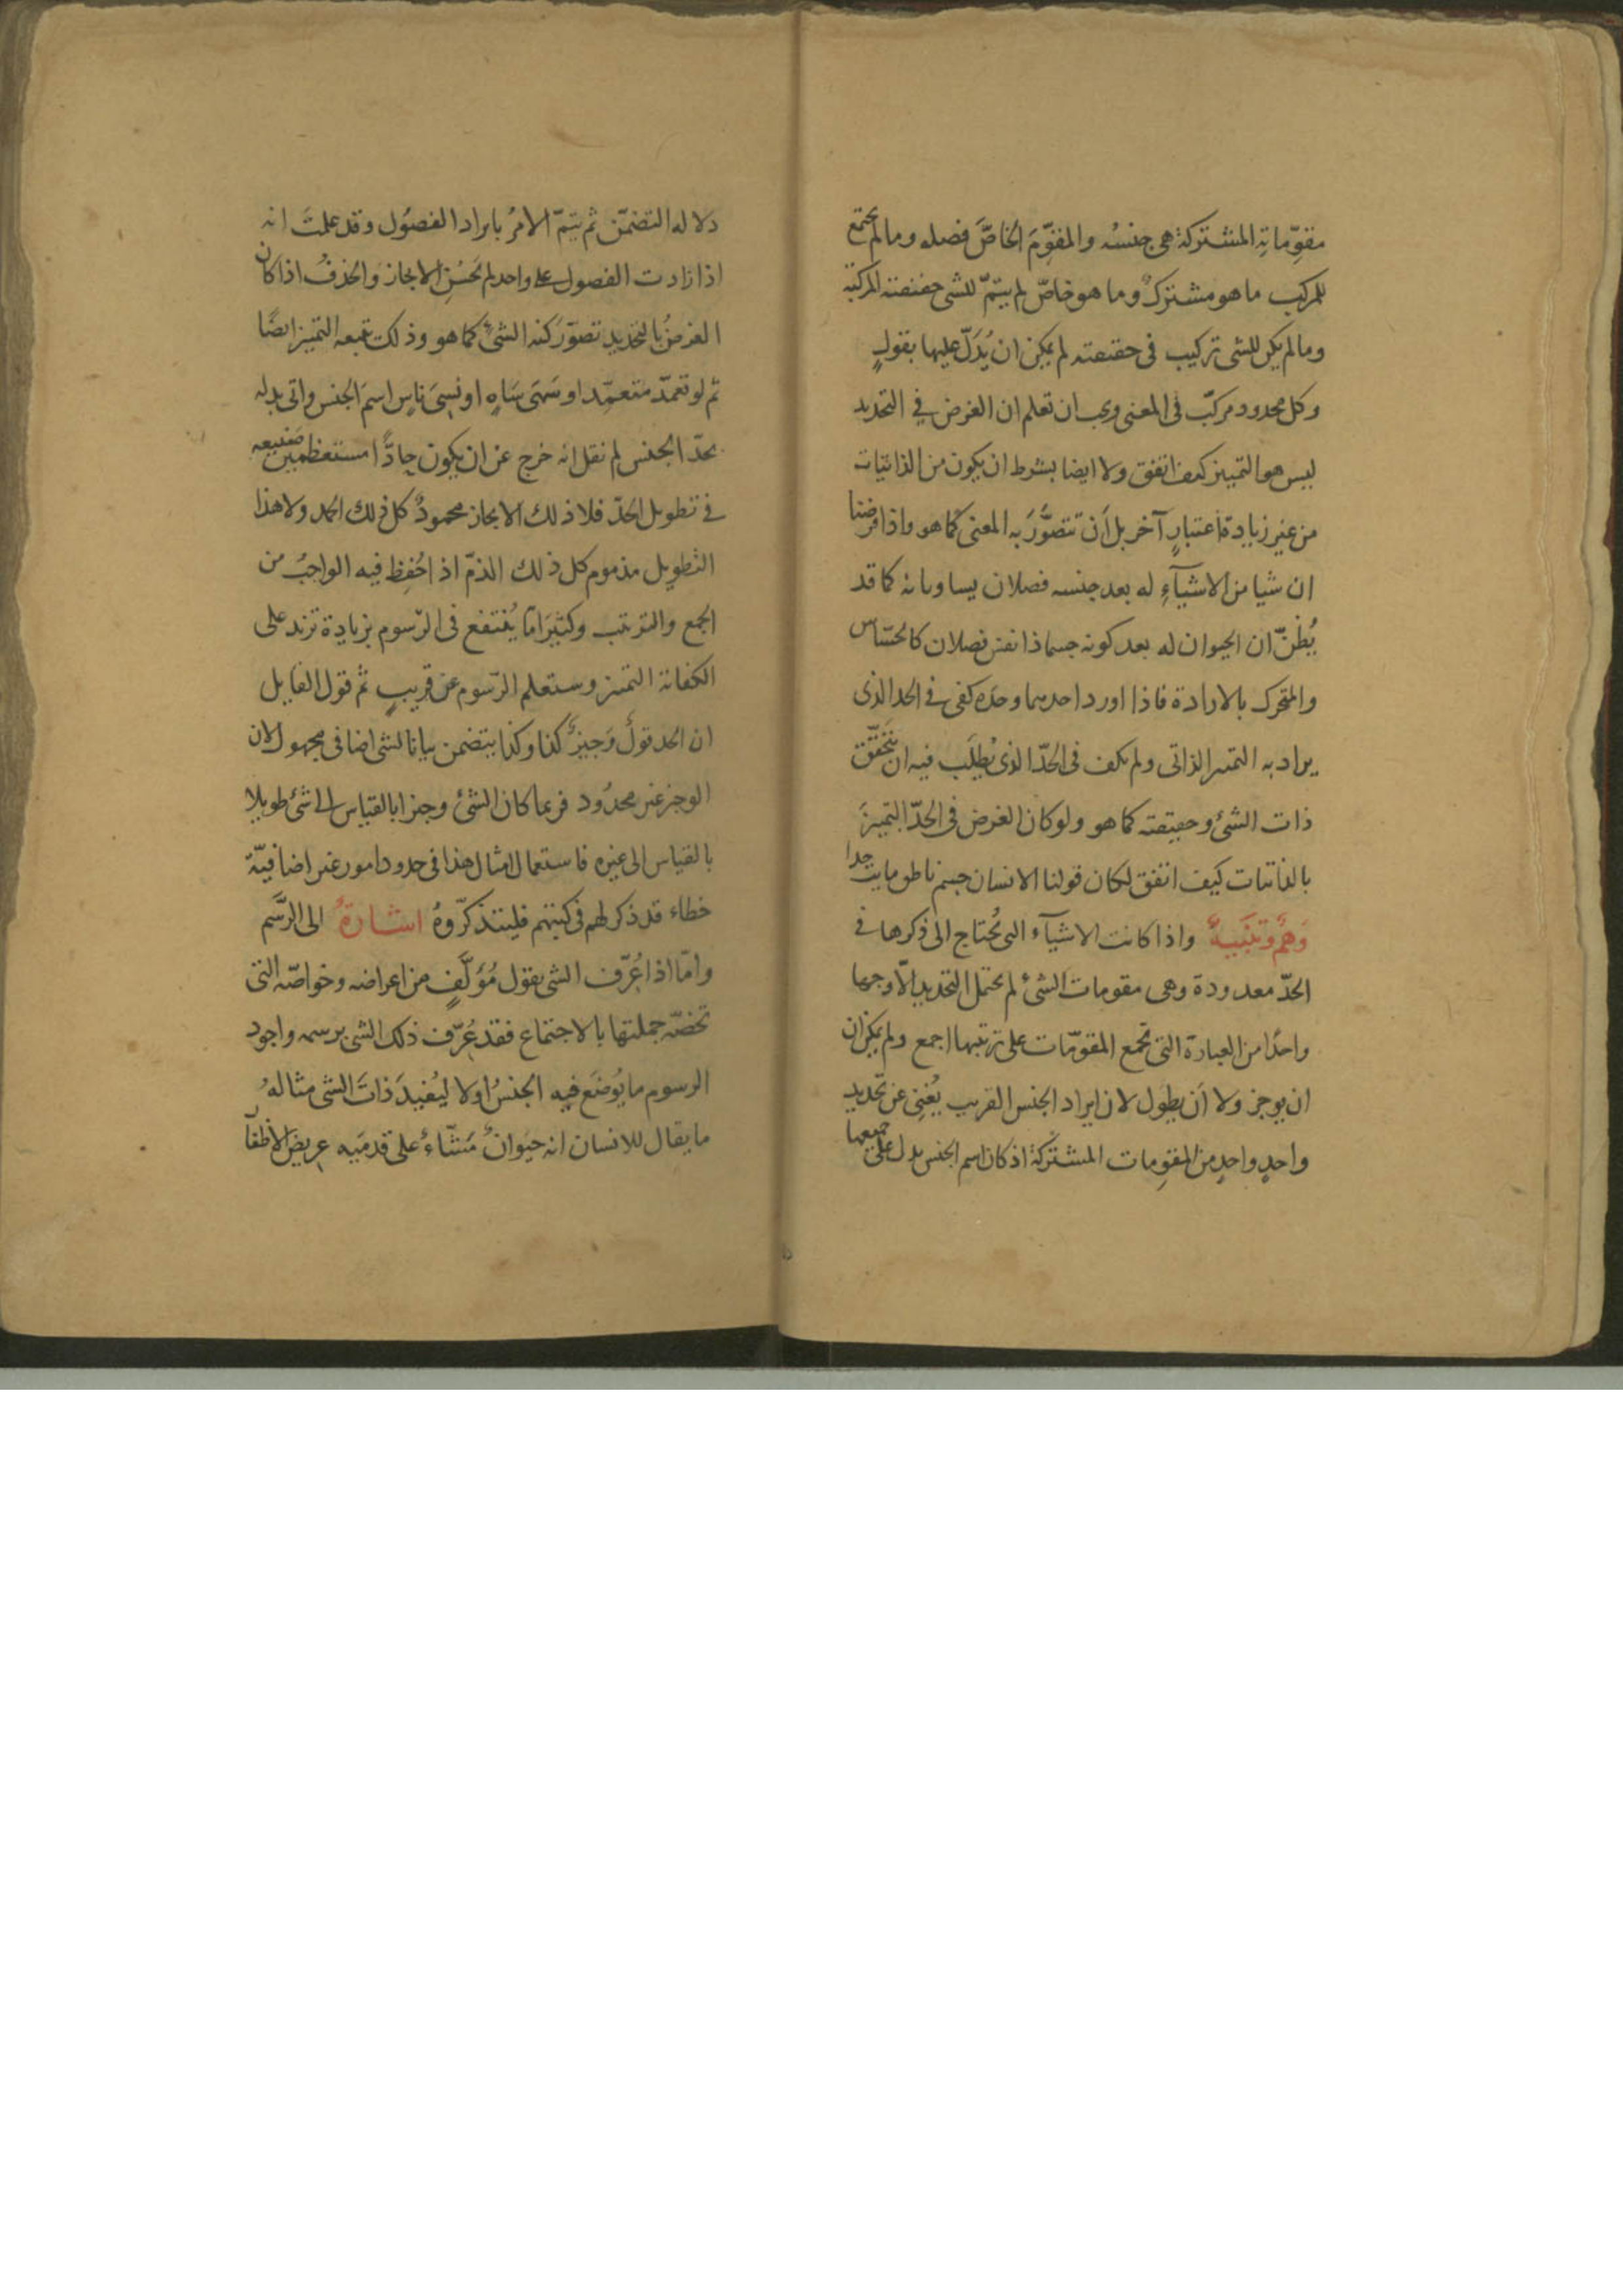 مقوّماته المشتركة هي جنسُه والمقوّمَ الخاصَّ فصله وما لم يجتمع
للمركب ما هو مشترك وما هو خاصّ لم يتمّ للشى حقيقته المركبة
وما لم يكن للشى تركيب فى حقيقته لم يمكن ان يُدَلّ عليها بقولٍ
وكل محدود مركبّ فى المعنى ويجب ان تعلم ان الغرض في التحديد
ليس هو التمييز كيف اتفق ولا ايضا بشرط ان يكون من الذاتيات
من غير زيادة اعتبارٍ آخر بل اَن تتصوَّرَ به المعنى كما هو واذا فرضنا
ان شيا من الاشيآءِ له بعد جنسه فصلان يساويانه كما قد
يُظنّ ان الحيوان له بعد كونه جسما ذا نفس فصلان كالحسّاس
والمتحرك بالارادة فاذا اورد احدهما وحده كفى في الحد الذى
يراد به التميز الذاتى ولم يكف فى الحدّ الذى يُطلَب فيه ان يتحَقّق
ذات الشئ وحقيقته كما هو ولو كان الغرض فى الحدّ التميزَ
بالذاتيات كيف اتفق لكان قولنا الانسان جسم ناطق مايت حدا
وَهمٌ وتنبيهٌ واذا كانت الاشيآء التى تُحتاج الى ذكرها في
الحدّ معدودة وهى مقومات الشئ لم يحتمل التحديد الّا وجها
واحدًا من العبارة التى تجمع المقوّمات على ترتيبها اجمع ولم يمكن ان
ان يوجز ولا اَن يطول لان ايراد الجنس القريب يُغنِى عن تحديد
واحدٍ واحدٍ من المقومات المشتركة اذ كان اسم الجنس يدل على جميعها
دلاله التضمّن ثم يتمّ الامرُ بايراد الفصُول وقد علمتَ انه
اذا زادت الفصول على واحد لم يَحسُنِ الايجاز والحذفُ اذا كان
الغرضُ بالتحديد تصوّرَ كنه الشئ كما هو وذلك تتبعه التميز ايضًا
ثم لو تعمّد متعمّد او سَهَى سَاهٍ او نسِىَ ناسٍ اسمَ الجنس واتى بدله
بحدّ الجنس لم نقل انه خرج عن ان يكون حادًّا مستعظمين صنيعه
في تطويل الحدّ فلا ذلك الايجاز محمودٌ كل ذلك الحمد ولا هذا
التطويل مذموم كل ذلك الذمّ اذ احُفِظ فيه الواجبُ من
الجمع والترتيب وكثيرًا مّا يُنتفع فى الرّسوم بزيادة تزيد على
الكفاية التميز وستعلم الرّسوم عن قريبٍ ثم قول القايل
ان الحد قولٌ وَجيزٌ كذا وكذا يتضمن بيانا لشى اضافى مجهول لان
الوجيز غير محدُود فربما كان الشئ وجيزا بالقياس الى شئ طويلا
بالقياس الى غيره فاستعمال امثال هذا فى حدود امور غير اضافيّة
خطاء قد ذكر لهم فى كتبهم فليتذكّروهُ اشارةٌ الى الرَّسم
وامّا اذا عُرّف الشى بقول مُؤلَّفٍ من اعراضه وخواصّه التى
تخصّه جملتها بالاجتماع فقد عُرّف ذلك الشى برسمه واجود
الرسوم ما يُوضَع فيه الجنسُ اولا ليُفيدَ ذاتَ الشى مثالهُ
ما يقال للانسان انه حيَوانٌ مَشّاءٌ على قدميَه عريض الاظفآ